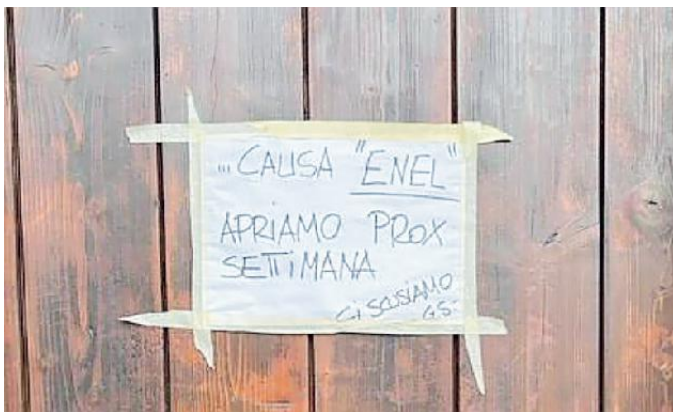 ... CAUSA "ENEL"
APRIAMO PROX
SETTIMANA
Ci SCUSIAMO
GS.